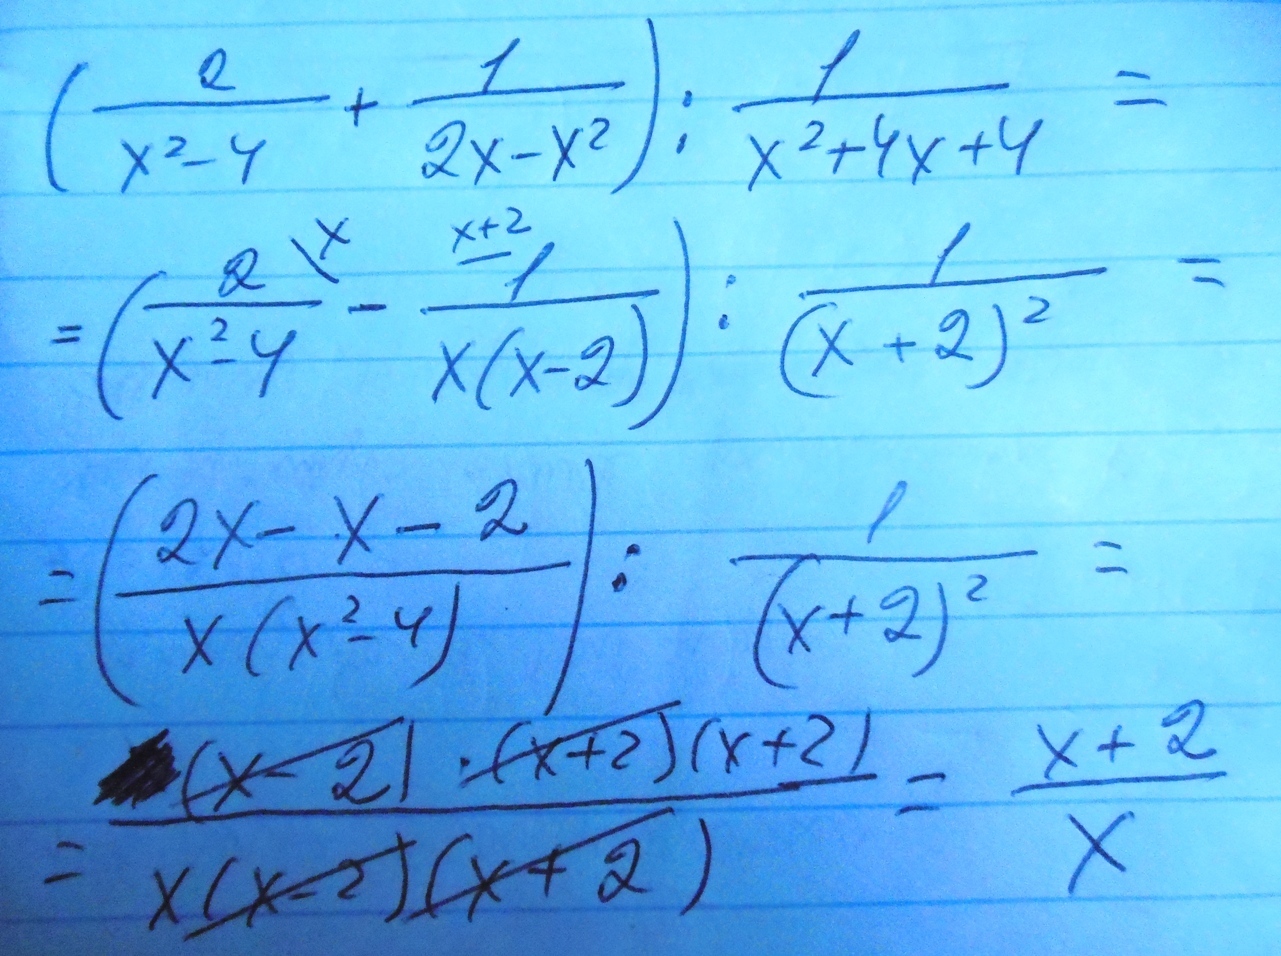 (2/(x²-4) + 1/(2x-x²)) : 1/(x²+4x+4) =
= (2\x/(x²-4) - x+2 1/(x(x-2))) : 1/(x+2)² =
= ((2x-x-2)/(x(x²-4))) : 1/(x+2)² =
= (x-2)·(x+2)(x+2)/(x(x-2)(x+2)) = (x+2)/x